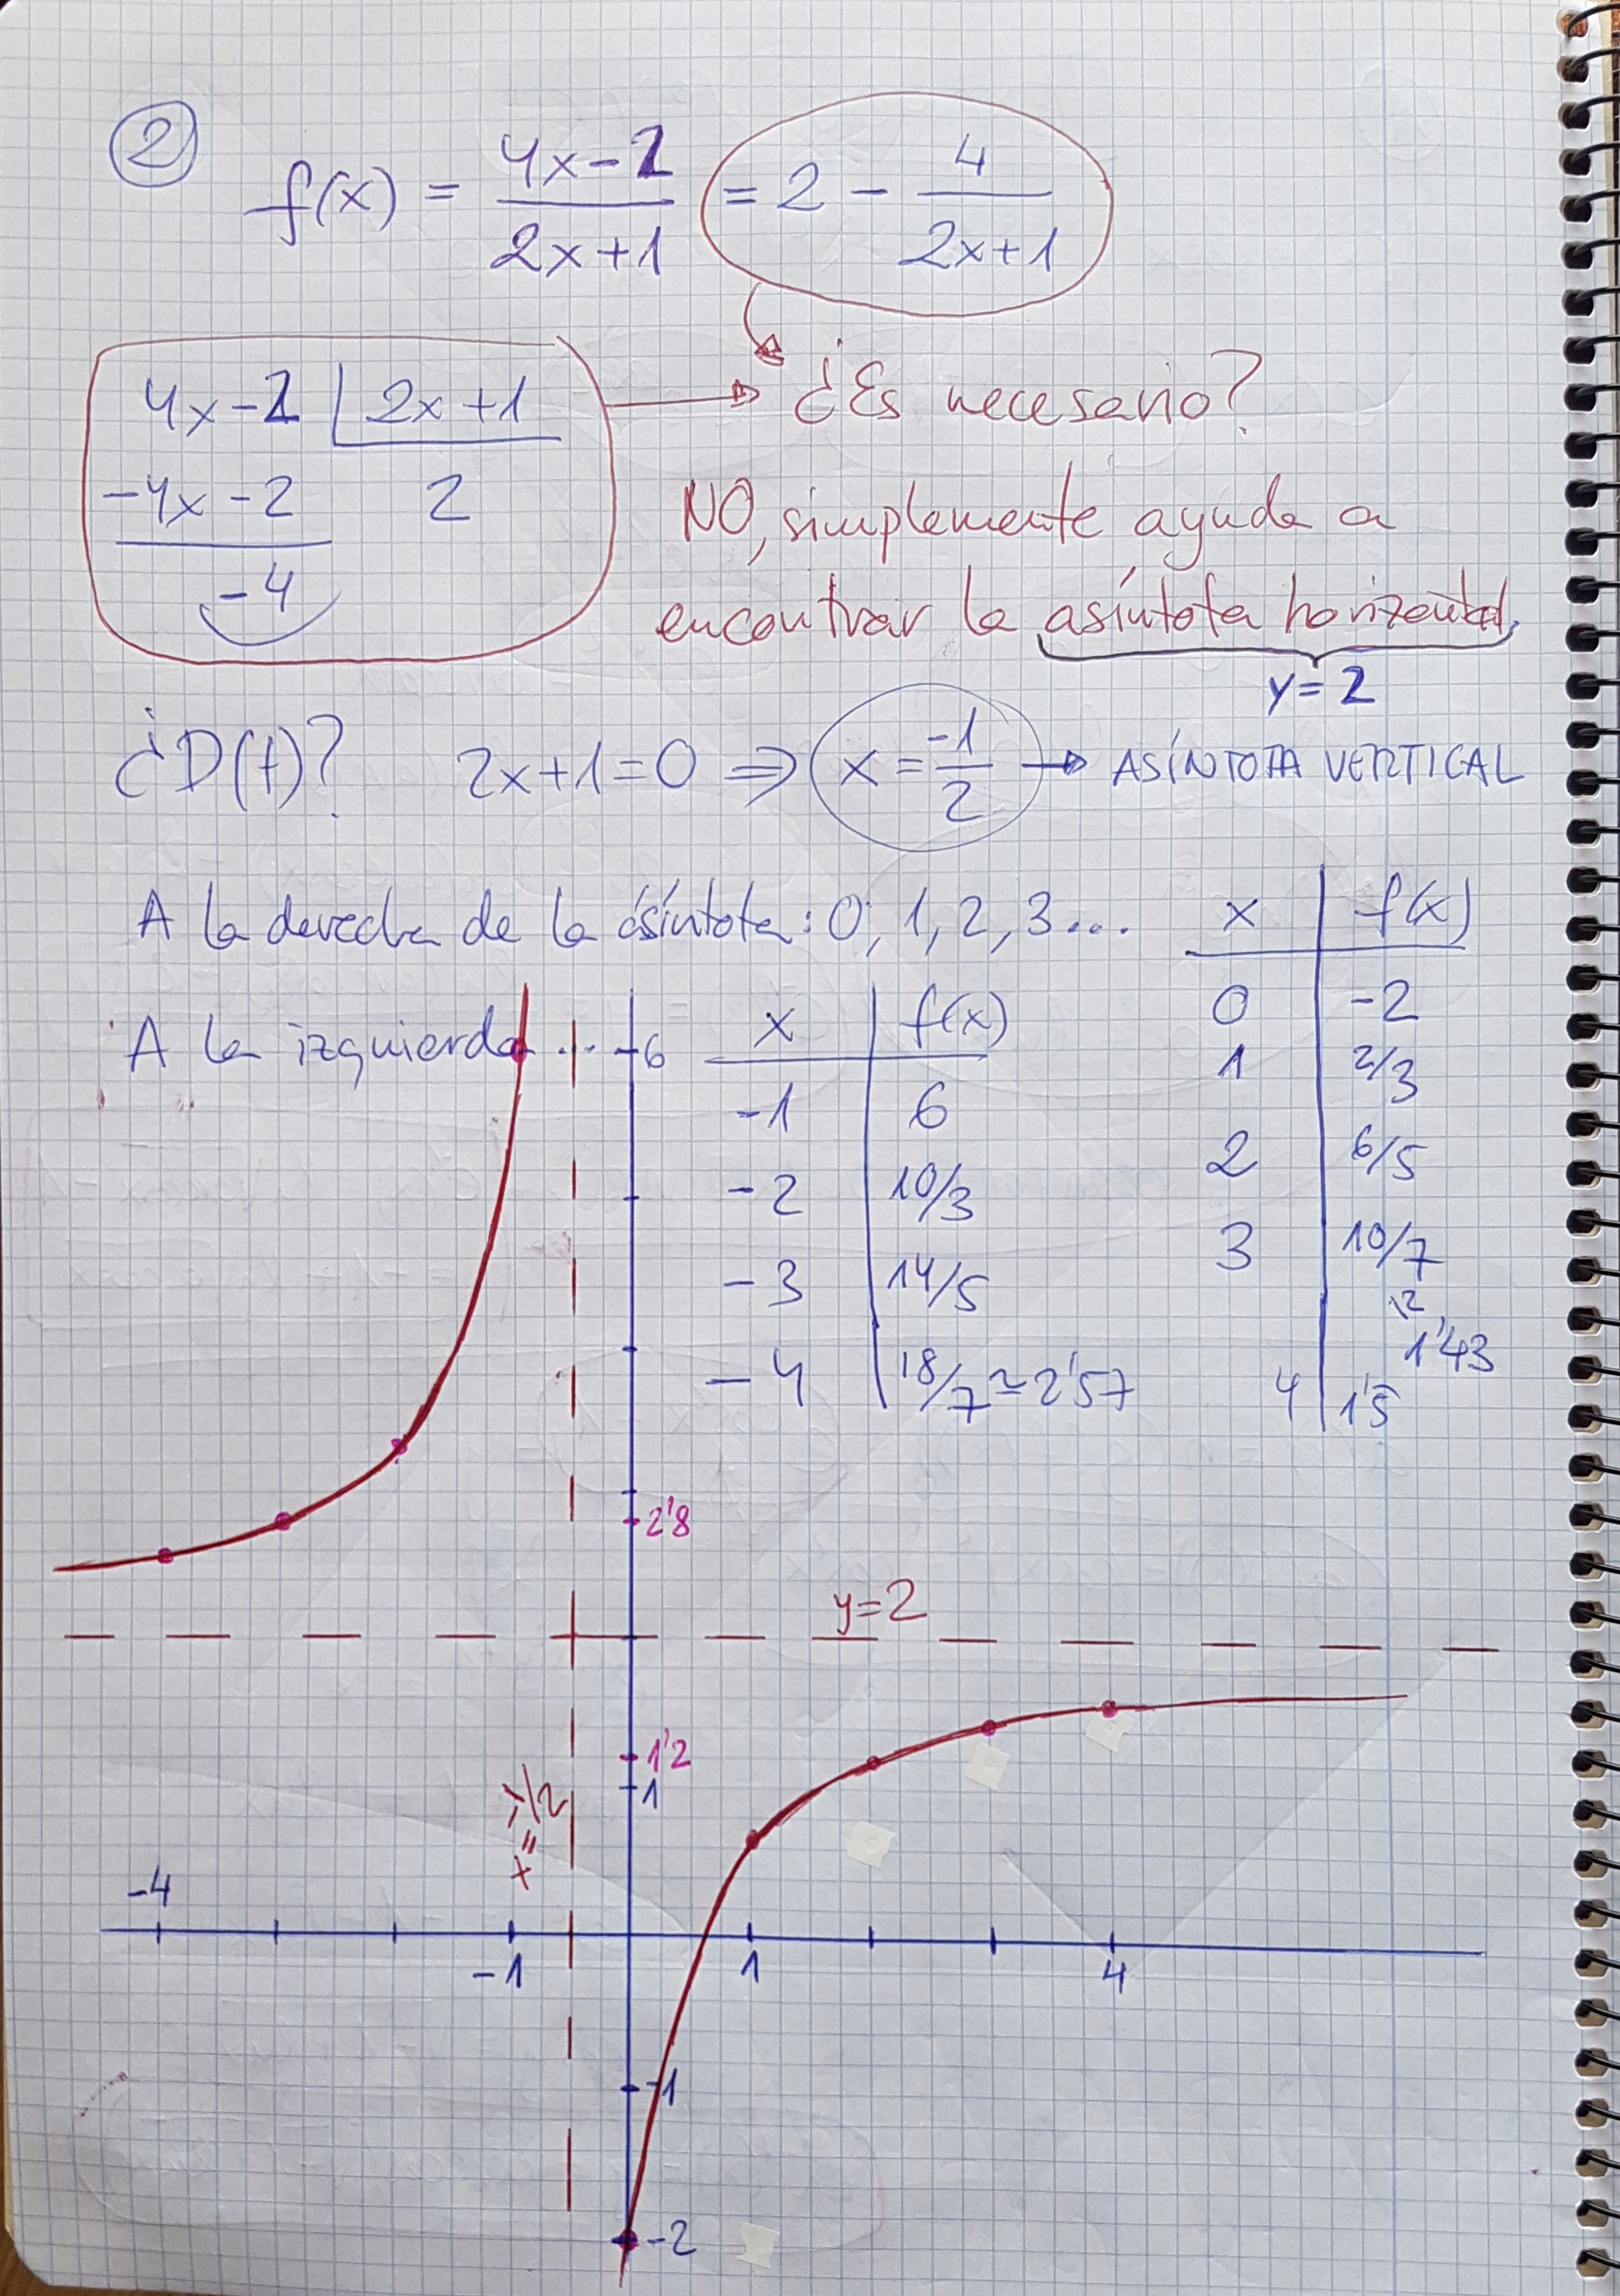 2
f(x) = (4x-2)/(2x+1) = 2 - 4/(2x+1)
4x-2 | 2x+1
-4x-2 2
-4
¿Es necesario?
NO, simplemente ayuda a
encontrar la asíntota horizontal,
y=2
¿D(f)? 2x+1=0 ⇒ x = -1/2 → ASÍNTOTA VERTICAL
A la derecha de la asíntota: 0, 1, 2, 3...
x | f(x)
0 | -2
1 | 2/3
2 | 6/5
3 | 10/7
≈
1'43
4 | 1'5
A la izquierda...
x | f(x)
-1 | 6
-2 | 10/3
-3 | 14/5
-4 | 18/7 ≈ 2'57
6
2'8
y=2
1'2
1
x=-1/2
-4
-1
1
4
-1
-2